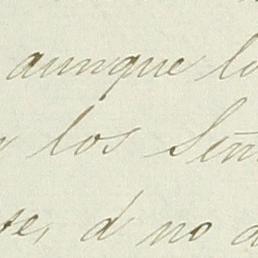 aunque lo
los Señ
se, á no d